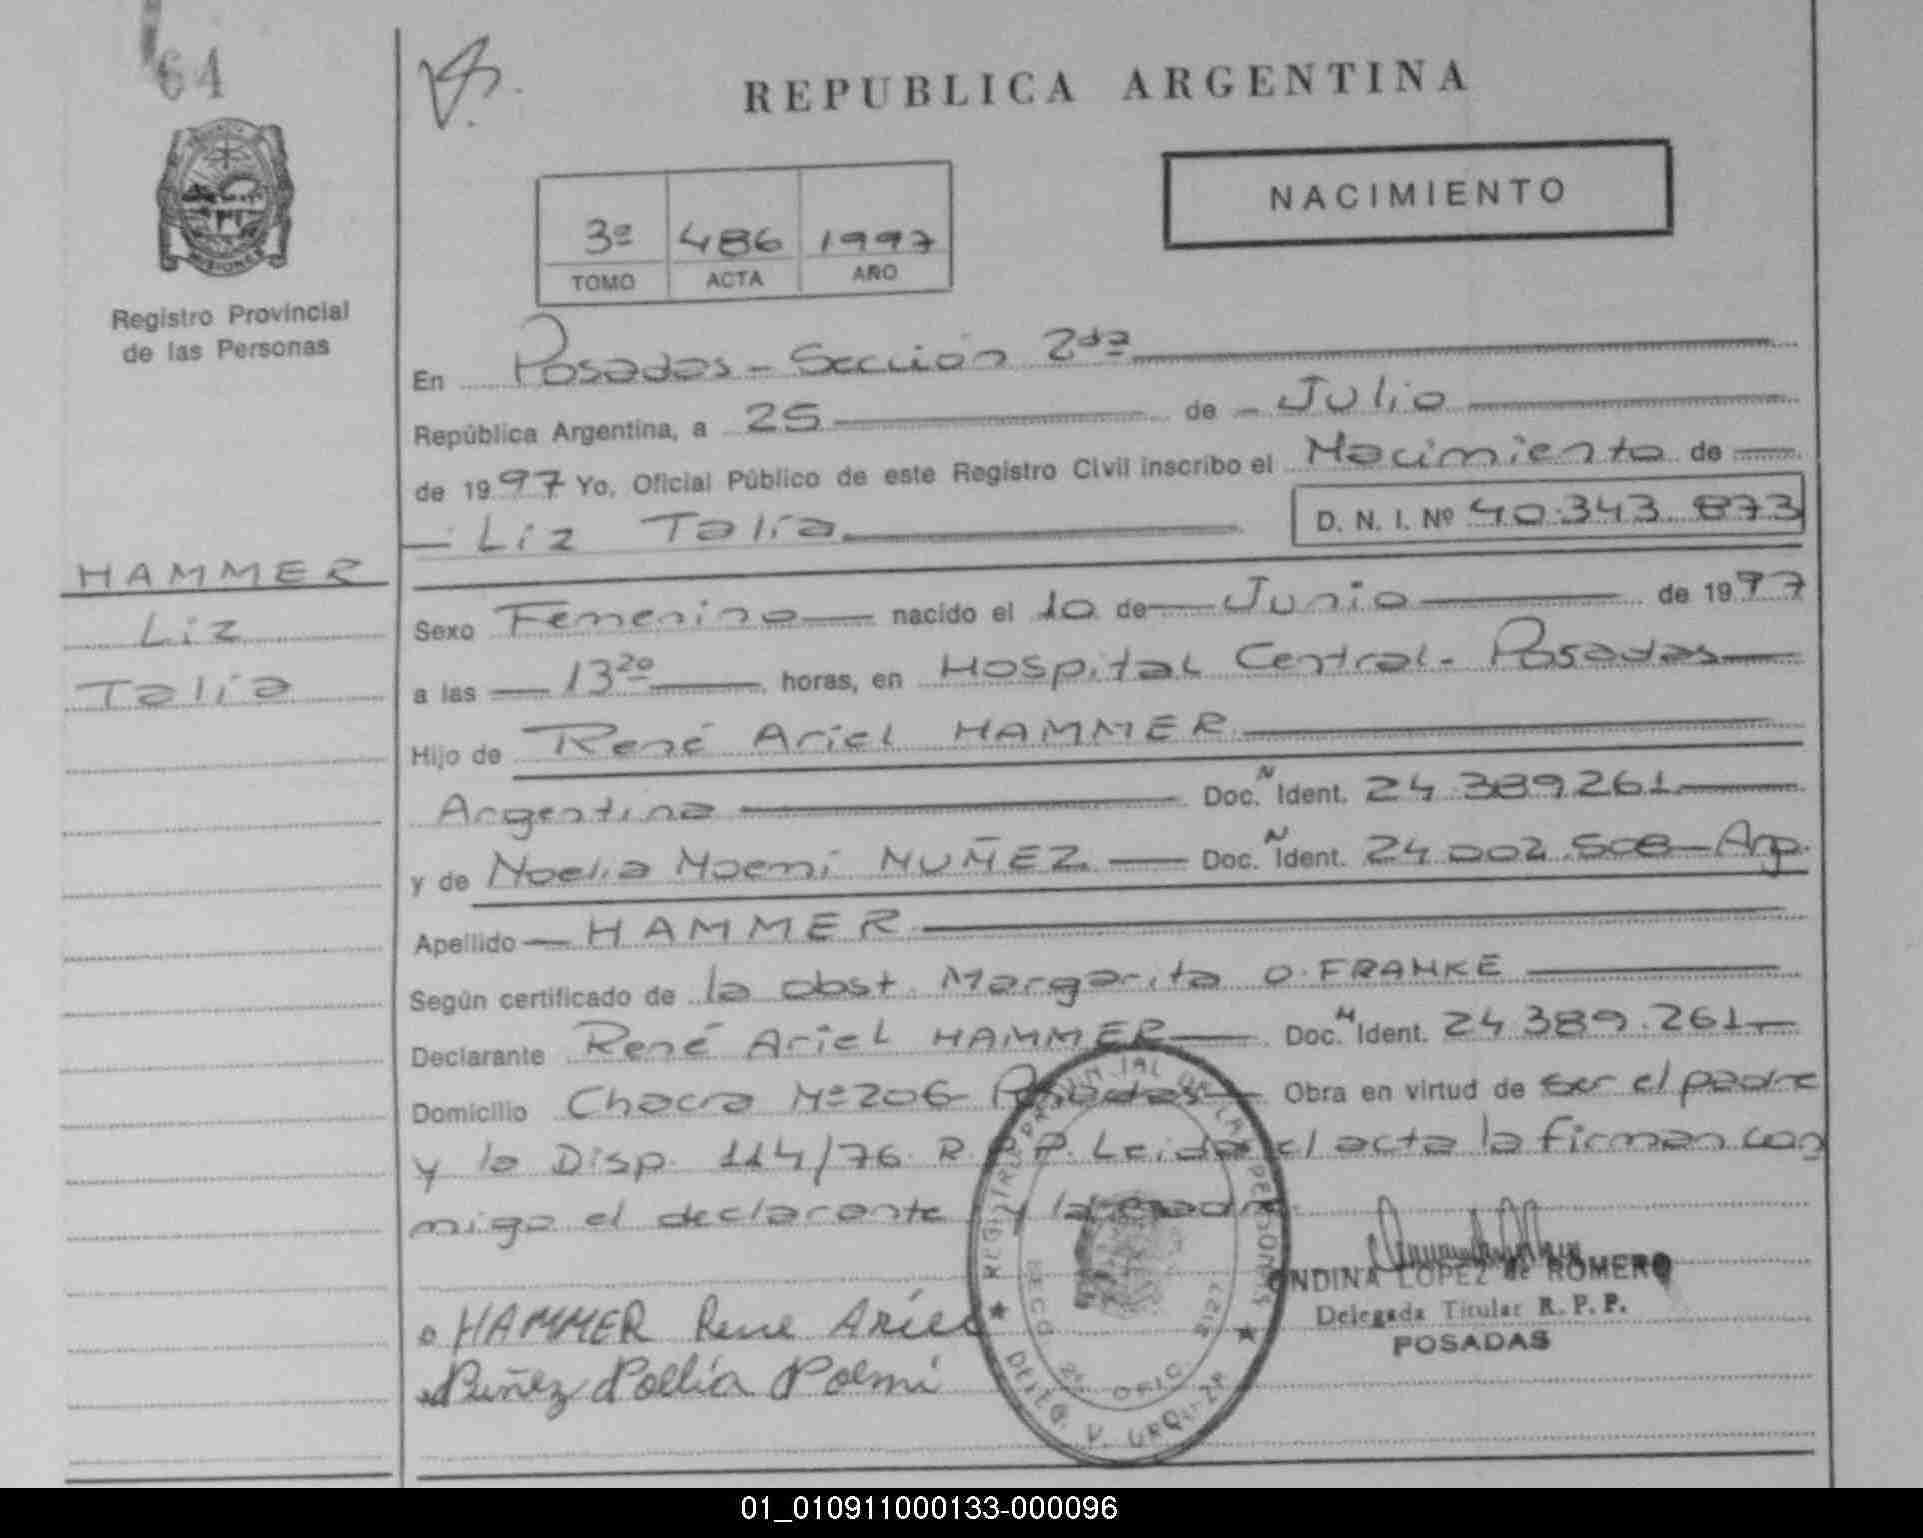 64
REPUBLICA ARGENTINA
NACIMIENTO
3º 486 1997
TOMO ACTA AÑO
MISIONES
Registro Provincial
de las Personas
En Posadas - Sección 2da
República Argentina, a 25 de - Julio
de 1997 Yo, Oficial Público de este Registro Civil inscribo el Nacimiento de
- Liz Talía D. N. I. Nº 40.343.873
HAMMER
Liz
Talía
Sexo Femenino nacido el 10 de Junio de 1997
a las 13 20 horas, en Hospital Central - Posadas
Hijo de René Ariel HAMMER
Argentina Doc. N Ident. 24.389.261
y de Noelia Noemi NUÑEZ Doc. N Ident. 24.002.508 - Arg.
Apellido - HAMMER
Según certificado de la obst. Margarita O. FRANKE
Declarante René Ariel HAMMER Doc. N Ident. 24.389.261
Domicilio Chacra Nº 206 - Posadas Obra en virtud de ser el padre
y la Disp. 114/76 R.P.P. Leida el acta la firman con
migo el declarante y la madre.
HAMMER Rene Ariel
Nuñez Noelia Noemi
REGISTRO PROVINCIAL DE LAS PERSONAS
ONDINA LOPEZ de ROMERO
Delegada Titular R. P. P.
POSADAS
01_010911000133-000096